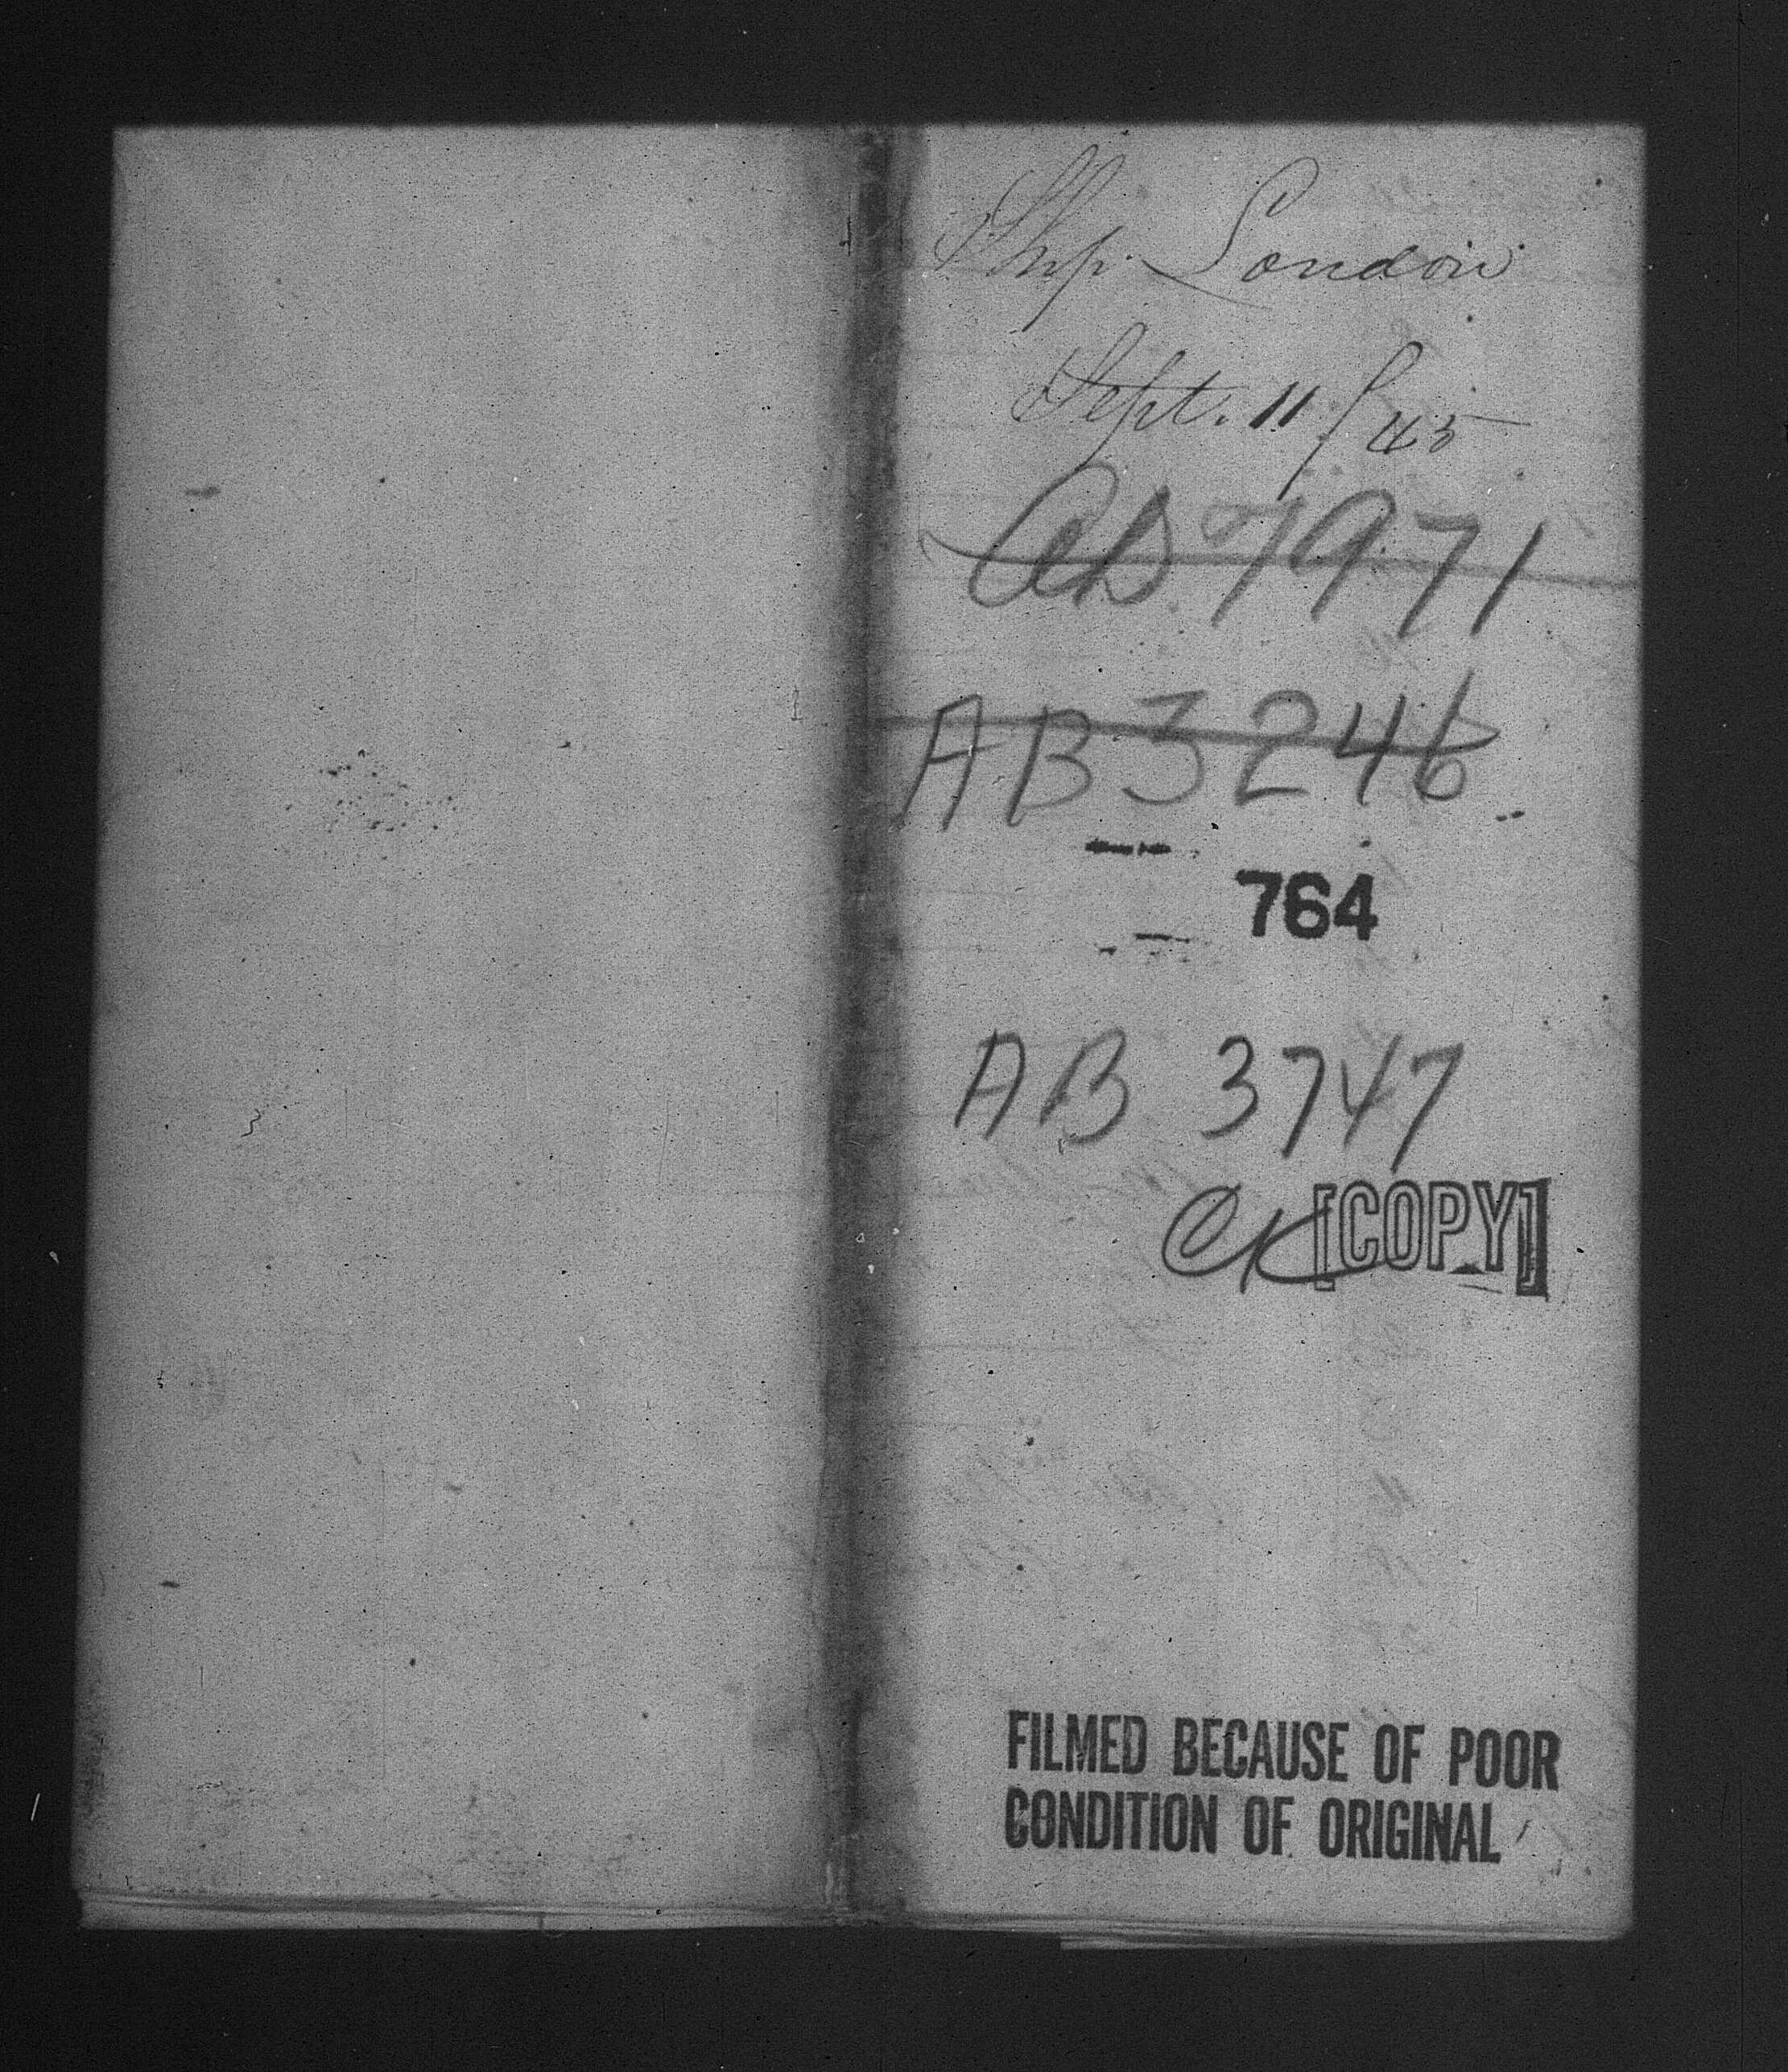 Ship London
Sept. 11/45
AB 7971
AB 3246
764
AB 3747
CK [COPY]
FILMED BECAUSE OF POOR
CONDITION OF ORIGINAL